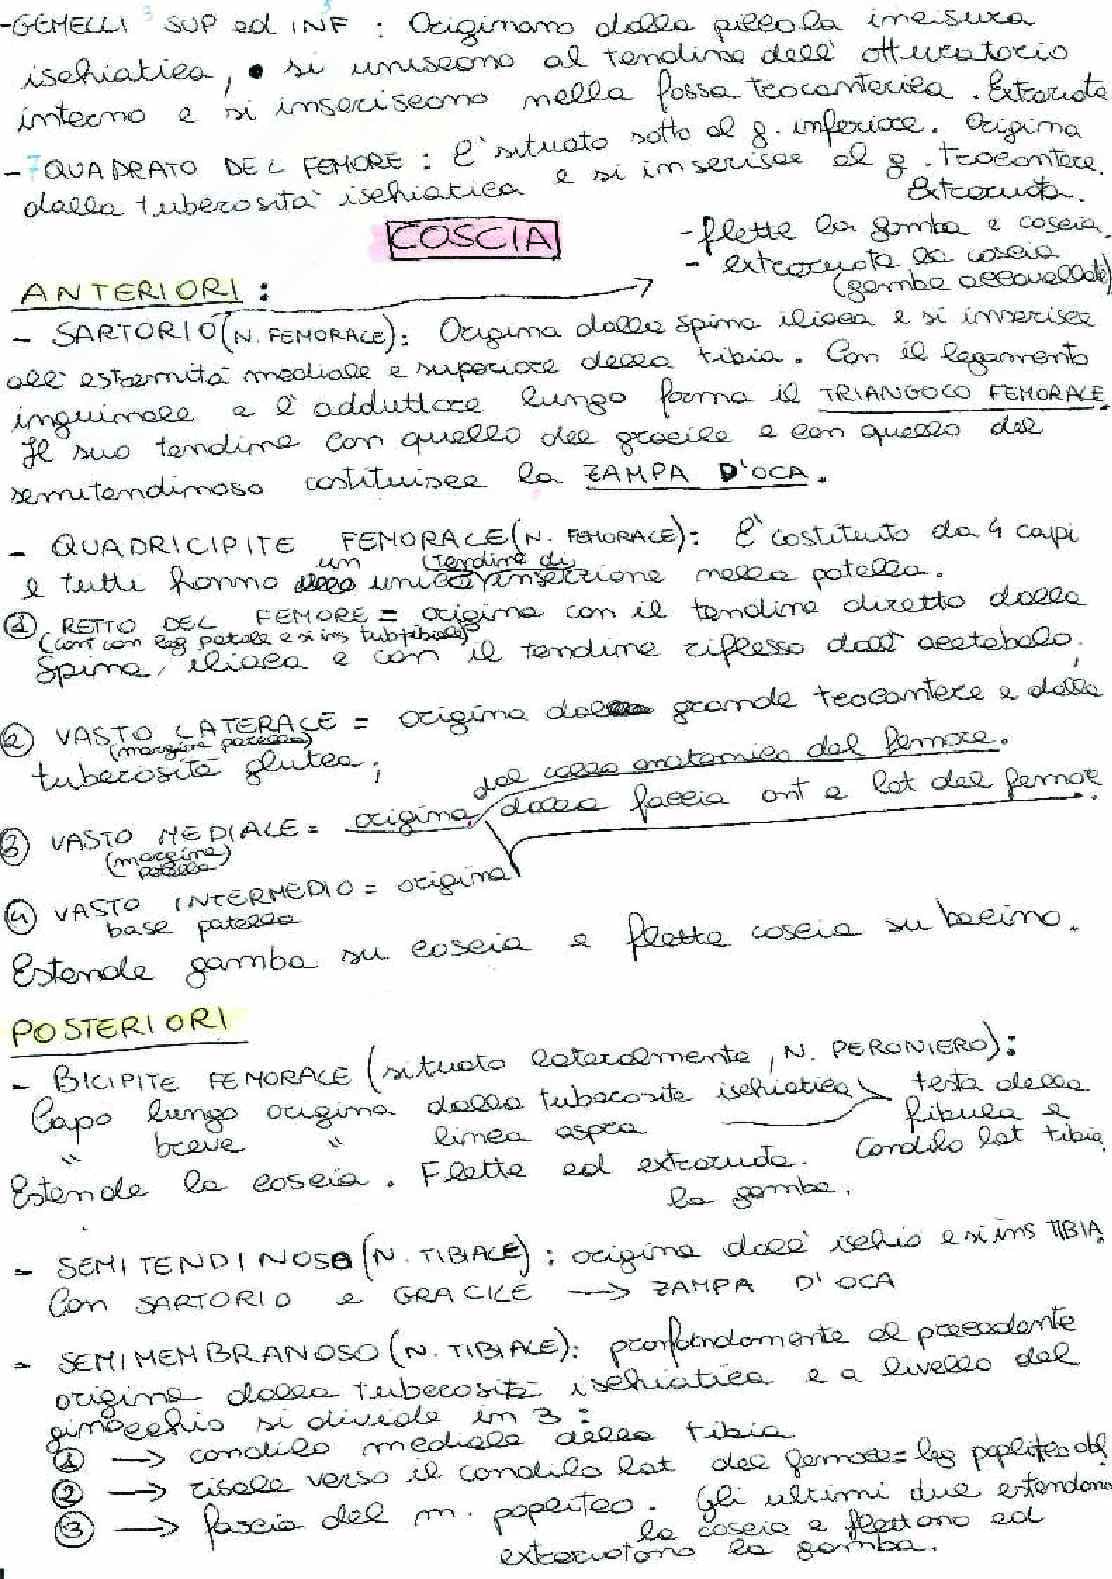 -GEMELLI SUP ed INF : Originano dalla piccola incisura
ischiatica, si uniscono al tendine dell' otturatorio
interno e si inseriscono nella fossa trocanterica. Extraruota
- 7 QUADRATO DEL FEMORE : E' situato sotto al g. inferiore. Origina
dalla tuberosità ischiatica e si inserisce al g. trocantere.
Extraruota.
COSCIA
- flette la gamba e coscia.
- extraruota la coscia
(gambe accavallate)
ANTERIORI :
- SARTORIO (N. FEMORALE): Origina dalla spina iliaca e si inserisce
all' estremità mediale e superiore della tibia. Con il legamento
inguinale e l' adduttore lungo forma il TRIANGOLO FEMORALE
Il suo tendine con quello del gracile e con quello del
semitendinoso costituisce la ZAMPA D'OCA.
- QUADRICIPITE FEMORALE (N. FEMORALE): E' costituito da 4 capi
e tutti hanno un unico tendine di inserzione nella patella.
① RETTO DEL FEMORE = origina con il tendine diretto dalla
(cont con leg patell e si ins tub tibiale)
Spina iliaca e con il tendine riflesso dall' acetabolo.
② VASTO LATERALE = origina dal grande trocantere e dalla
(margine patella)
tuberosità glutea;
dal collo anatomico del femore.
③ VASTO MEDIALE = origina dalla faccia ant e lat del femore
(margine
patella)
④ VASTO INTERMEDIO = origina
base patella
Estende gamba su coscia e flette coscia su bacino.
POSTERIORI
- BICIPITE FEMORALE (situato lateralmente, N. PERONIERO):
Capo lungo origina dalla tuberosità ischiatica > testa della
" breve " linea aspra fibula e
condilo lat tibia.
Estende la coscia. Flette ed extraruota
la gamba.
- SEMITENDINOSO (N. TIBIALE) : origina dall' ischio e si ins TIBIA
Con SARTORIO e GRACILE → ZAMPA D' OCA
- SEMIMEMBRANOSO (N. TIBIALE): profondamente al precedente
origina dalla tuberosità ischiatica e a livello del
ginocchio si divide in 3 :
① → condilo mediale della tibia
② → risale verso il condilo lat del femore = leg popliteo obl
③ → fascia del m. popliteo. Gli ultimi due estendono
la coscia e flettono ed
extraruotano la gamba.